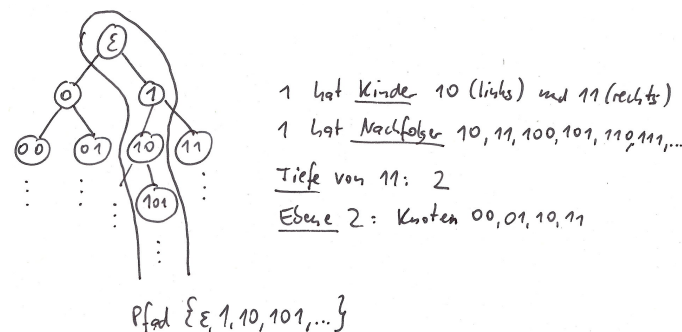 ε
0 1
00 01 10 11
101
1 hat Kinder 10 (links) und 11 (rechts)
1 hat Nachfolger 10, 11, 100, 101, 110, 111, ...
Tiefe von 11: 2
Ebene 2: Knoten 00, 01, 10, 11
Pfad {ε, 1, 10, 101, ...}